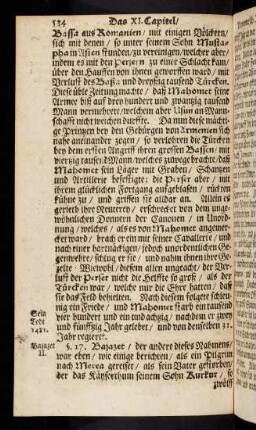 534 Das XI. Capitel/
Bassa aus Romanien/ mit einigen Völckern/
sich mit denen/ so unter seinem Sohn Musta-
pha in Asien stunden/ zu vereinigen/welcher aber/
indem es mit den Persen zu einer Schlacht kam/
über den Hauffen von ihnen geworffen ward/ mit
Verlust des Bassa und dreyssig tausend Türcken.
Diese üble Zeitung machte/ daß Mahomet seine
Armee biß auf drey hundert und zwantzig tausend
Mann vermehrte/welchem aber Usun an Mann-
schafft nicht weichen durffte. Da nun diese mächti-
ge Printzen bey den Gebürgen von Armenien sich
nahe aneinander zogen/ so verlohren die Türcken
bey dem ersten Angriff ihren grossen Bassen mit
viertzig tausend Mann/welches zuwege bracht/daß
Mahomet sein Läger mit Graben/ Schantzen
und Artillerie befestigte: die Perser aber/ mit
ihrem glücklichen Fortgang aufgeblasen/ rückten
kühne zu/ und griffen sie alldar an. Allein es
gerieth ihre Reuterey/ erschrecket von dem unge-
wöhnlichen Donnern der Canonen/ in Unord-
nung/ welches/ als es von Mahomet angemer-
cket ward/ brach er ein mit seiner Cavallerie/ und
nach einer hartnäckigen/ jedoch unordentlichen Ge-
genwehr/ schlug er sie/ und nahm ihnen ihre Ge-
zelte. Wiewohl/ diesem allen ungeacht/ der Ver-
lust der Perser nicht die Helffte so groß/ als der
Türcken war/ welche nur die Ehre hatten/ daß
sie das Feld behielten. Nach diesem folgete schleu-
nig ein Friede/ und Mahomet starb ein tausend
Sein
Todt
1481.
vier hundert und ein und achtzig/ nachdem er zwey
und fünffzig Jahr gelebet/ und von denselben 31.
Jahr regieret.
Bajazet
II.
§. 17. Bajazet/ der ander dieses Nahmens/
war eben/ wie einige berichten/ als ein Pilgrim
nach Mecca gereiset/ als sein Vater gestorben/
der das Käyserthum seinem Sohn Kurkut/ so
zwölff